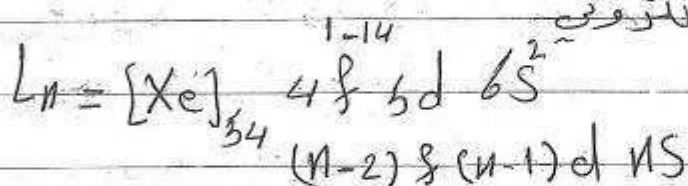 Ln = [Xe]₅₄ 4f¹⁻¹⁴ 5d 6S²
(n-2) f (n-1) d nS